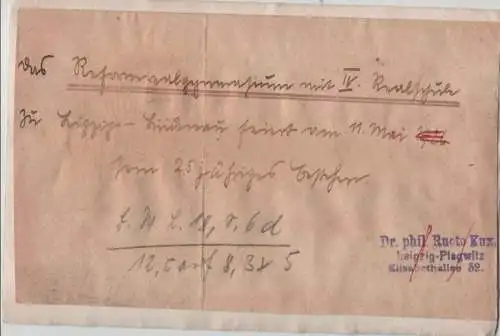 Das Reformrealgymnasium mit IV. Realschule
zu Leipzig-Lindenau feiert am 11. Mai
sein 25jähriges Bestehen.
12,5 auf 8,3 x 5
Dr. phil. Kux,
Leipzig-Plagwitz
Elisabethallee 52.